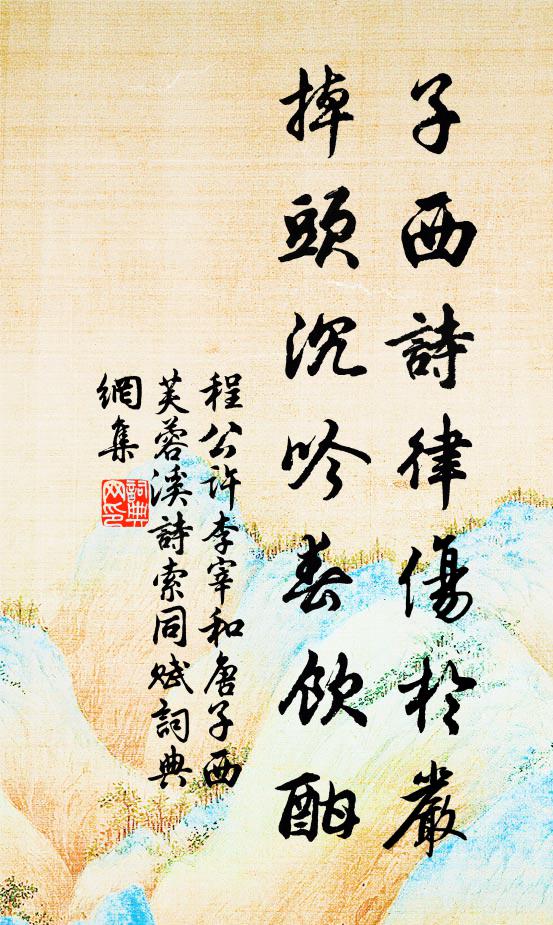 子西詩律傷於嚴
掉頭沉吟春飲酣
程公許李宰和唐子西
芙蓉溪詩索同賦詞典
網集
詞典
网